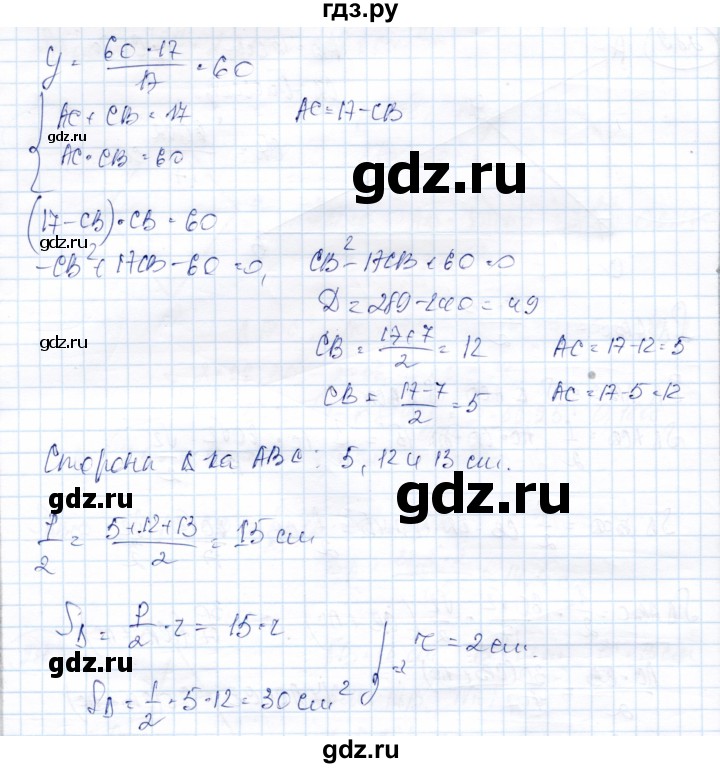 гдз.ру
y = 60·17/17 = 60
gdz.ru
AC + CB = 17    AC = 17 - CB
gdz.ru
AC · CB = 60
gdz.ru
(17 - CB) · CB = 60
-CB² + 17CB - 60 = 0,    CB² - 17CB + 60 = 0
D = 289 - 240 = 49
gdz.ru
CB = 17+7/2 = 12    AC = 17 - 12 = 5
CB = 17-7/2 = 5    AC = 17 - 5 = 12
Сторона Δ-ка ABC: 5, 12 и 13 см.
gdz.ru
P/2 = 5+12+13/2 = 15 см
gdz.ru
S_Δ = P/2 · r = 15 · r
gdz.ru
=> r = 2 см.
S_Δ = 1/2 · 5 · 12 = 30 см²
gdz.ru
gdz.ru